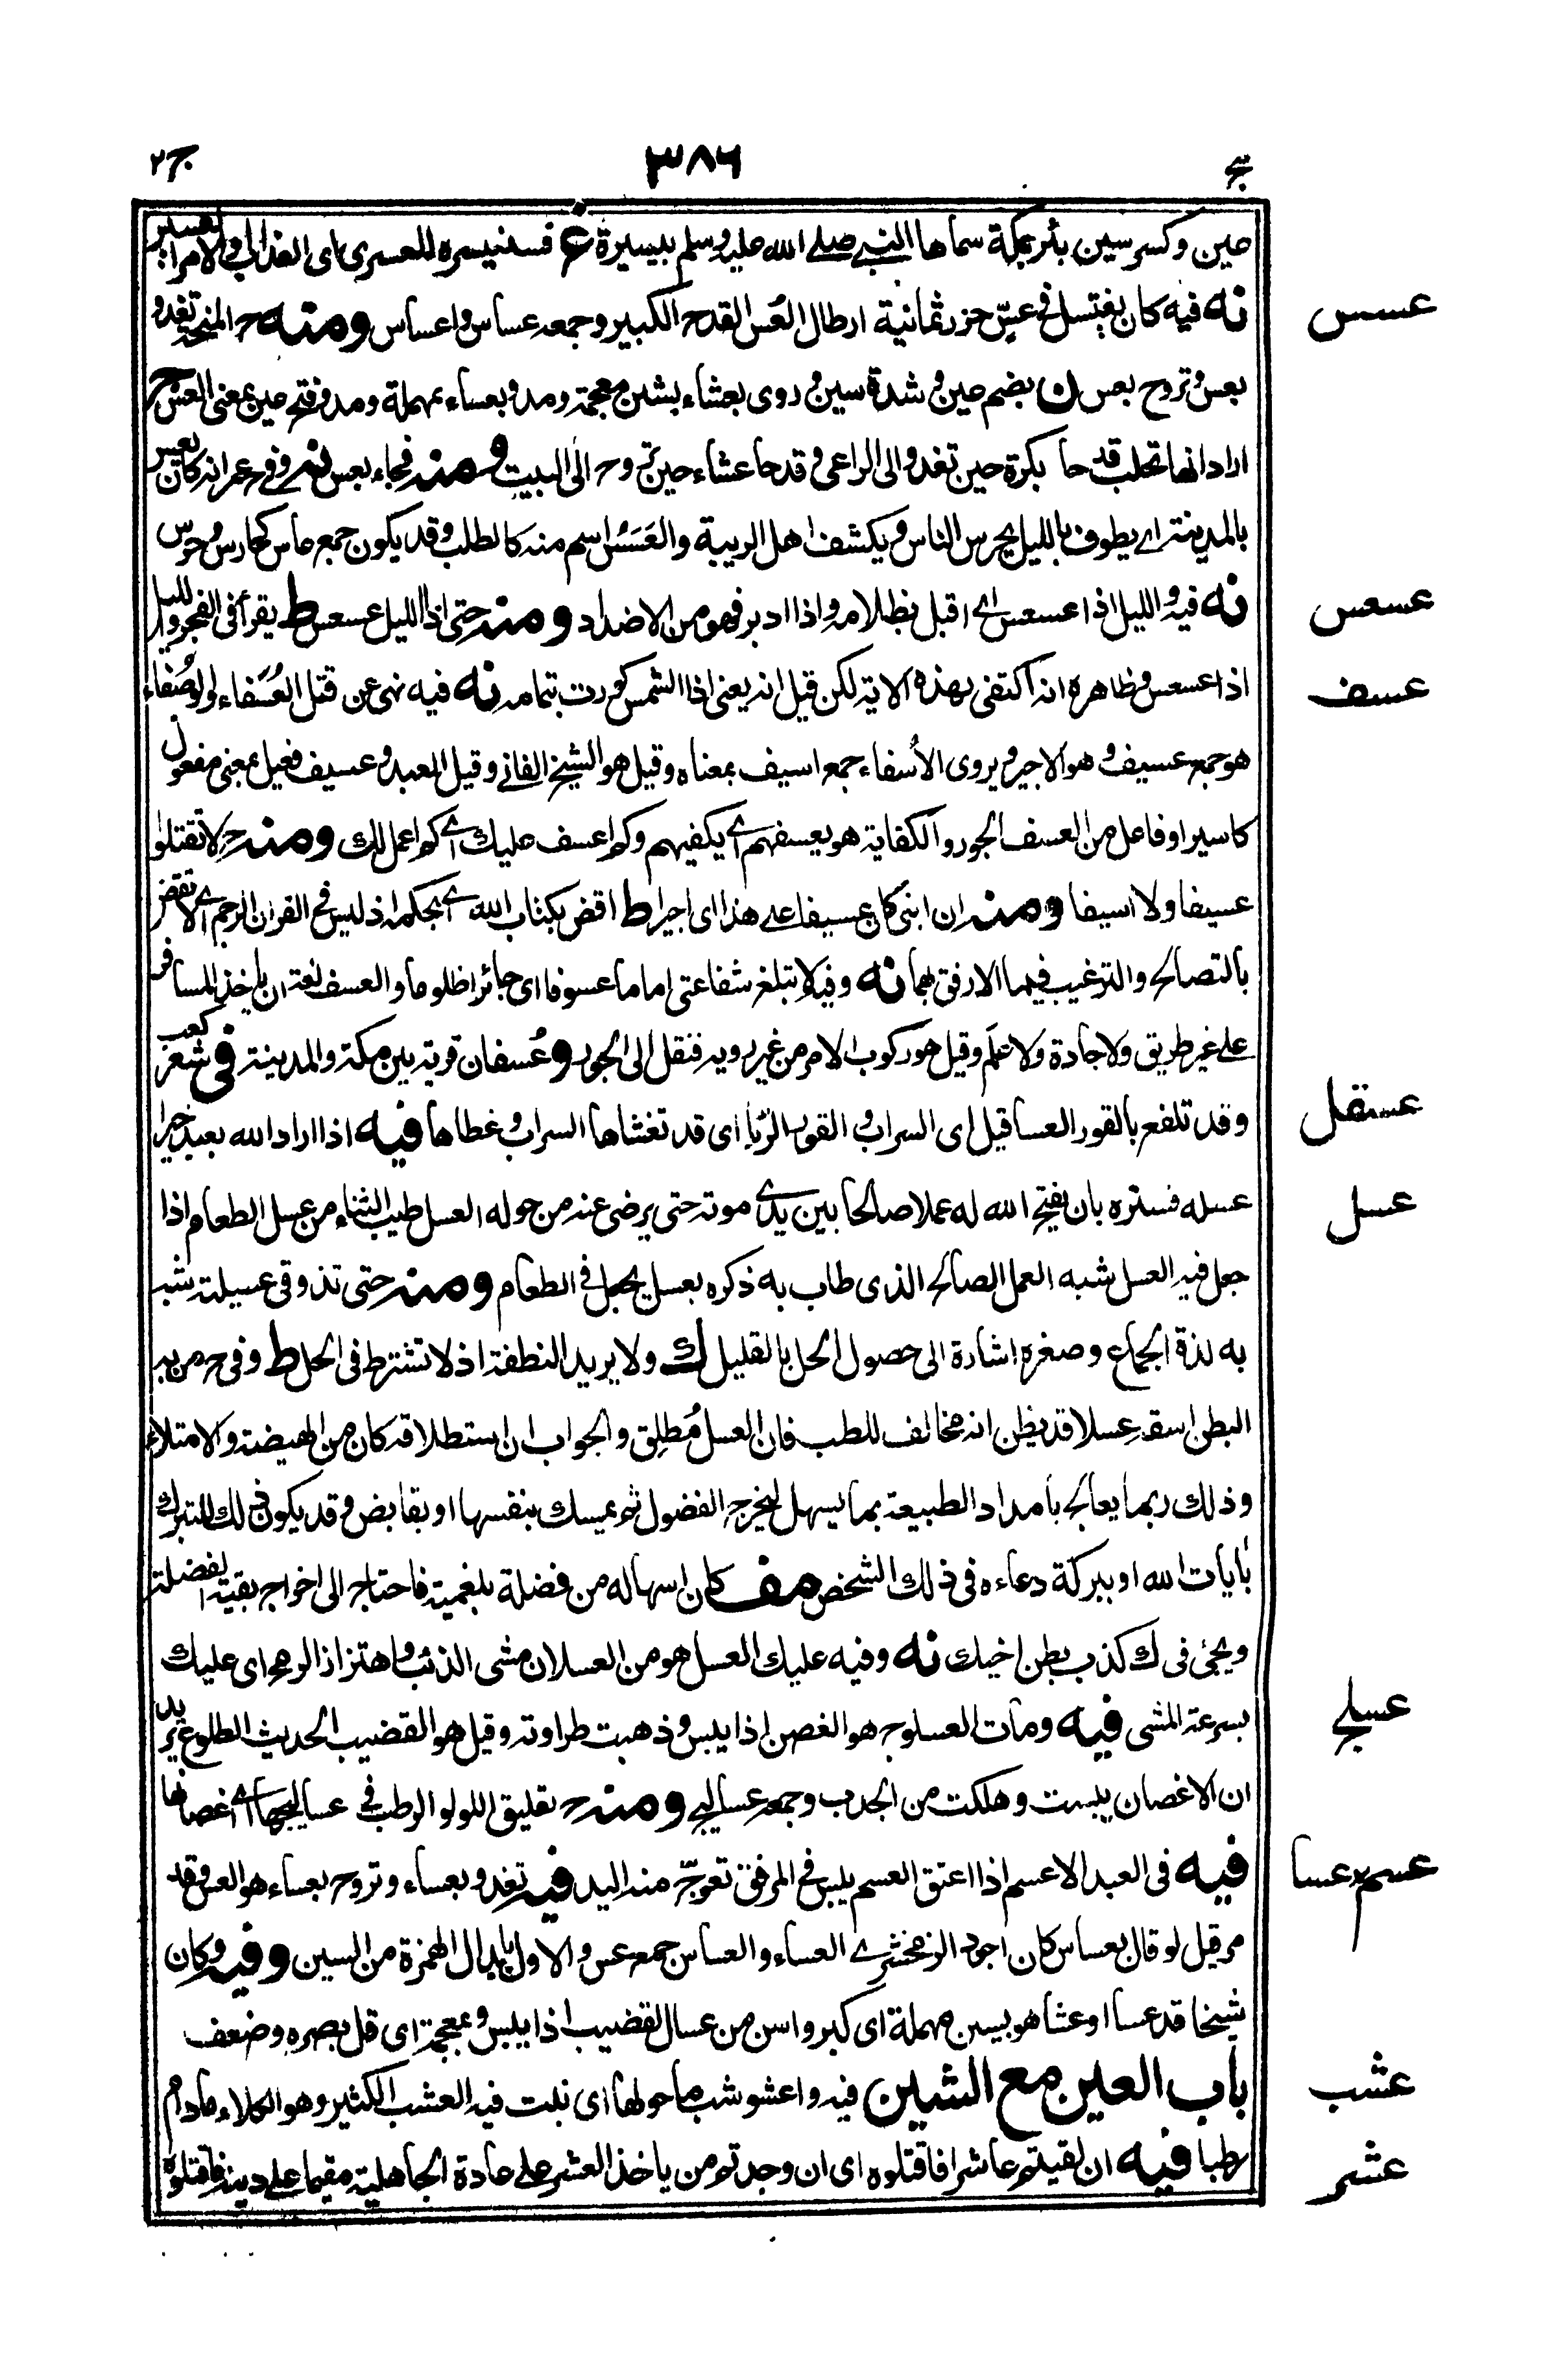 ج٢
٣٨٦
عين وكسر سين بئر بمكة سماها النبى صلى الله عليه وسلم بيسيرة غ فسنيسره للعسرى اى العذاب والامر العسير
عسس
نه فيه كان يغتسل فى عسّ حزر ثمانية ارطال العُس القدح الكبير وجمعه عساس واعساس ومنه ح المنحة تغدو
بعس وتروح بعس ن بضم عين وشدة سين وروى بعشاء بشين معجمة ومد وبعساء بمهملة ومد وفتح عين بمعنى العس ح
اراد انها تحلب قدحا بكرة حين تغدو الى الراعى وقدحا عشاء حين تروح الى البيت ومنه فجاء بعس نه وفى ح عمر انه كان يعس
بالمدينة اى يطوف بالليل يحرس الناس ويكشف اهل الريبة والعَسَسُ اسم منه كالطلب وقد يكون جمع عاس كحارس وحرس
عسعس
نه فيه والليل اذا عسعس اى اقبل بظلامه واذا ادبر فهو من الاضداد ومنه حتى اذا الليل عسعس ط يقرأ فى الفجر والليل
عسف
اذا عسعس وظاهره انه اكتفى بهذه الاية لكن قيل انه يعنى اذا الشمس كورت بتمامه نه فيه نهى عن قتل العُسَفاء والوُصَفاء
هو جمع عسيف وهو الاجير ويروى الأسفاء جمع اسيف بمعناه وقيل هو الشيخ الفانى وقيل العبد وعسيف فعيل بمعنى مفعول
كاسير او فاعل من العسف الجور والكفاية هو يعسفهم اى يكفيهم وكم اعسف عليك اى كم اعمل لك ومنه ح لا تقتلوا
عسيفا ولا اسيفا ومنه ان ابنى كان عسيفا على هذا اى اجيرا ط اقض بكتاب الله اى بحكمه اذ ليس فى القران الرجم اى لا تقض
بالتصالح والترغيب فيما الارفق بهما نه وفيه لا تبلغ شفاعتى اماما عسوفا اى جائرا ظلوما والعسف لغة ان ياخذ المسافر
على غير طريق ولا جادة ولا عَلَم وقيل هو ركوب الامر من غير روية فنقل الى الجور وعُسفان قرية بين مكة والمدينة فى شعر كعب
عسقل
وقد تلفع بالقور العساقيل اى السراب والقور الرُبا اى قد تغشاها السراب وغطاها فيه اذا اراد الله بعبد خيرا
عسل
عسله فستره بان يفتح الله له عملا صالحا بين يدى موته حتى يرضى عنه من حوله العسل طيب الثناء من عسل الطعام اذا
جعل فيه العسل شبه العمل الصالح الذى طاب به ذكره بعسل يجعل فى الطعام ومنه حتى تذوقى عسيلته شبه
به لذة الجماع وصغره اشارة الى حصول الحل بالقليل ك ولا يريد النطفة اذ لا تشترط فى الحل ط وفى ح من به
البطن اسقه عسلا قد يظن انه مخالف للطب فان العسل مُطلِق والجواب ان استطلاقه كان من الهيضة والامتلاء
وذلك ربما يعالج بأمداد الطبيعة بما يسهل ليخرج الفضول ثم يمسك بنفسها او بقابض وقد يكون ذلك للتبرك
بأيات الله او ببركة دعاءه فى ذلك الشخص مف كان اسهاله من فضلة بلغمية فاحتاج الى اخراج بقية الفضلة
ويجئ فى ك كذب بطن اخيك نه وفيه عليك العسل هو من العسلان مشى الذئب واهتزاز الرمح اى عليك
عسلج
بسرعة المشى فيه ومات العسلوج هو الغصن اذا يبس وذهبت طراوته وقيل هو القضيب الحديث الطلوع يريد
ان الاغصان يبست وهلكت من الجدب وجمعه عساليج ومنه ح تعليق اللولو الرطب فى عساليجها اى اغصانها
عسم عسا
فيه فى العبد الاعسم اذا اعتق العسم يبس فى المرفق تعوجّ منه اليد فيه تغدو بعساء وتروح بعساء هو العس وقد
مر قيل لو قال بعساس كان اجود الزمخشرى العساء والعساس جمع عس والاول بابدال الهمزة من السين وفيه وكان
شيخا قد عسا او عشا هو بسين مهملة اى كبر واسن من عسا القضيب اذا يبس وبمعجمة اى قل بصره وضعف
عشب
باب العين مع الشين فيه واعشوشب ما حولها اى نبت فيه العشب الكثير وهو الكلاء مادام
عشر
رطبا فيه ان لقيتم عاشرا فاقتلوه اى ان وجدتم من ياخذ العشر على عادة الجاهلية مقيما على دينه فاقتلوه